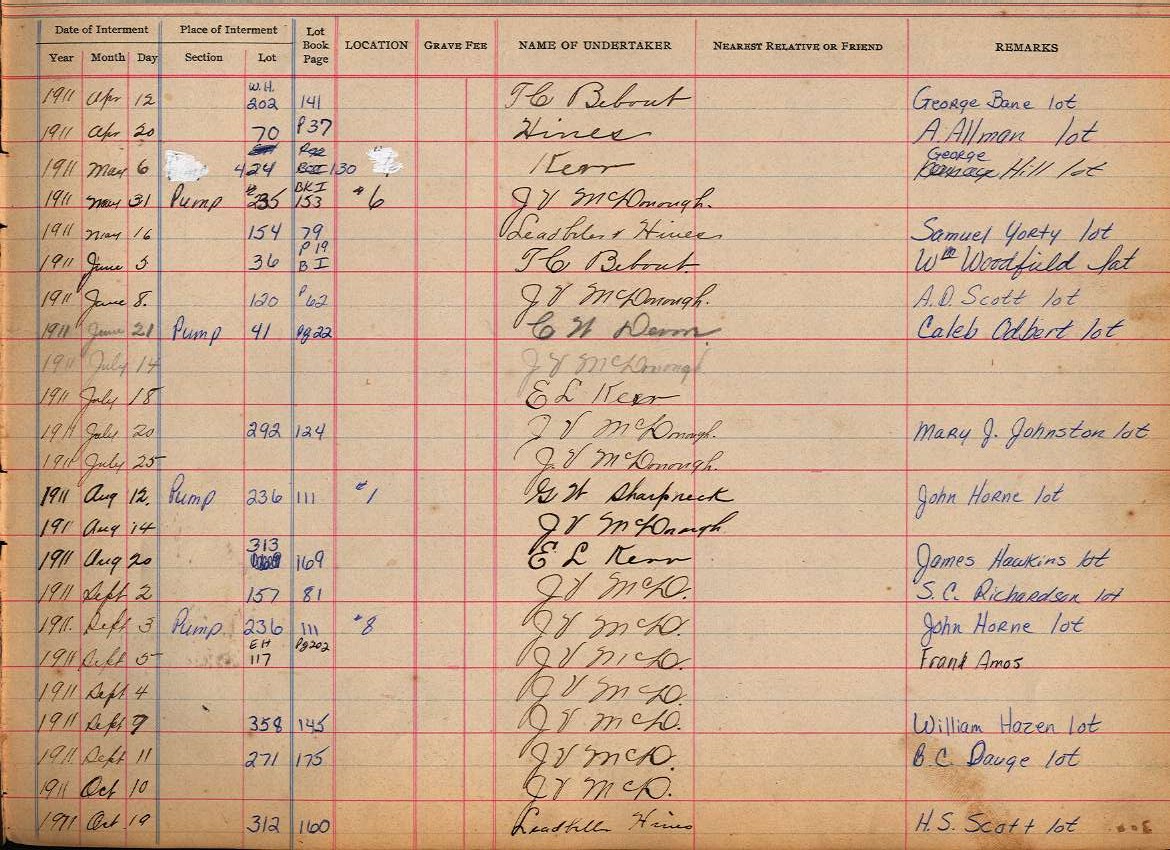 Date of Interment Place of Interment Lot Book Page LOCATION GRAVE FEE NAME OF UNDERTAKER NEAREST RELATIVE OR FRIEND REMARKS
Year Month Day Section Lot
1911 Apr 12 W.H. 202 141 T C Bebout George Bane lot
1911 Apr 20 70 P 37 Hines A. Allman lot
1911 May 6 424 130 Kerr George Hill lot
1911 May 31 Pump 235 BK I 153 #6 J V McDonough.
1911 May 16 154 79 Leadbeler & Hines Samuel Yorty lot
1911 June 5 36 P 19 B I T C Bebout Wm Woodfield lot
1911 June 8. 120 P 62 J V McDonough. A.D. Scott lot
1911 June 21 Pump 41 Pg 22 C W Caleb Odbert lot
1911 July 14 J V McDonough
1911 July 18 E L Kerr
1911 July 20 292 124 J V McDonough. Mary J. Johnston lot
1911 July 25 J. V McDonough.
1911 Aug 12. Pump 236 111 #1 G W Sharpneck John Horne lot
1911 Aug 14 J V McDonough
1911 Aug 20 313 169 E L Kerr James Hawkins lot
1911 Sept 2 157 81 J V McD. S.C. Richardson lot
1911. Sept 3 Pump 236 111 #8 J V McD. John Horne lot
1911 Sept 5 EH 117 Pg 202 J V McD. Frank Amos
1911 Sept 4 J V McD.
1911 Sept 9 358 145 J V McD. William Hazen lot
1911 Sept 11 271 175 J V McD. B.C. Dauge lot
1911 Oct 10 J V McD.
1911 Oct 19 312 160 Hines H.S. Scott lot